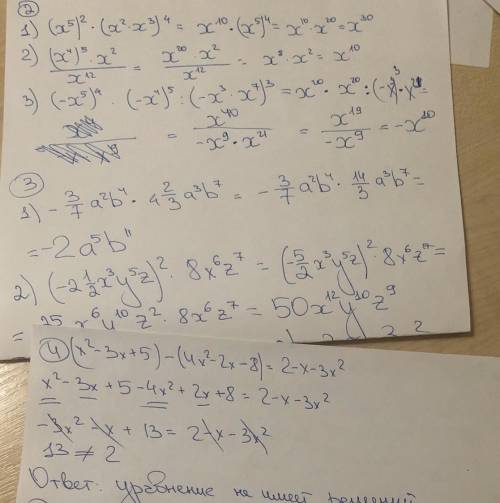 ②
1) (x⁵)² · (x² · x³)⁴ = x¹⁰ · (x⁵)⁴ = x¹⁰ · x²⁰ = x³⁰
2) (x⁴)⁵ · x² / x¹² = x²⁰ · x² / x¹² = x⁸ · x² = x¹⁰
3) (-x⁵)⁴ · (-x⁴)⁵ : (-x³ · x⁷)³ = x²⁰ · x²⁰ : (-x⁹ · x²¹) =
= x⁴⁰ / -x⁹ · x²¹ = x¹⁹ / -x⁹ = -x¹⁰
③
1) - 3/7 a²b⁴ · 4 2/3 a³b⁷ = - 3/7 a²b⁴ · 14/3 a³b⁷ =
= -2a⁵b¹¹
2) (-2 1/2 x³y⁵z)² · 8x⁶z⁷ = (-5/2 x³y⁵z)² · 8x⁶z⁷ =
x⁶y¹⁰z² · 8x⁶z⁷ = 50x¹²y¹⁰z⁹
④ (x² - 3x + 5) - (4x² - 2x - 8) = 2 - x - 3x²
x² - 3x + 5 - 4x² + 2x + 8 = 2 - x - 3x²
-3x² - x + 13 = 2 - x - 3x²
13 ≠ 2
Ответ: уравнение не имеет решений